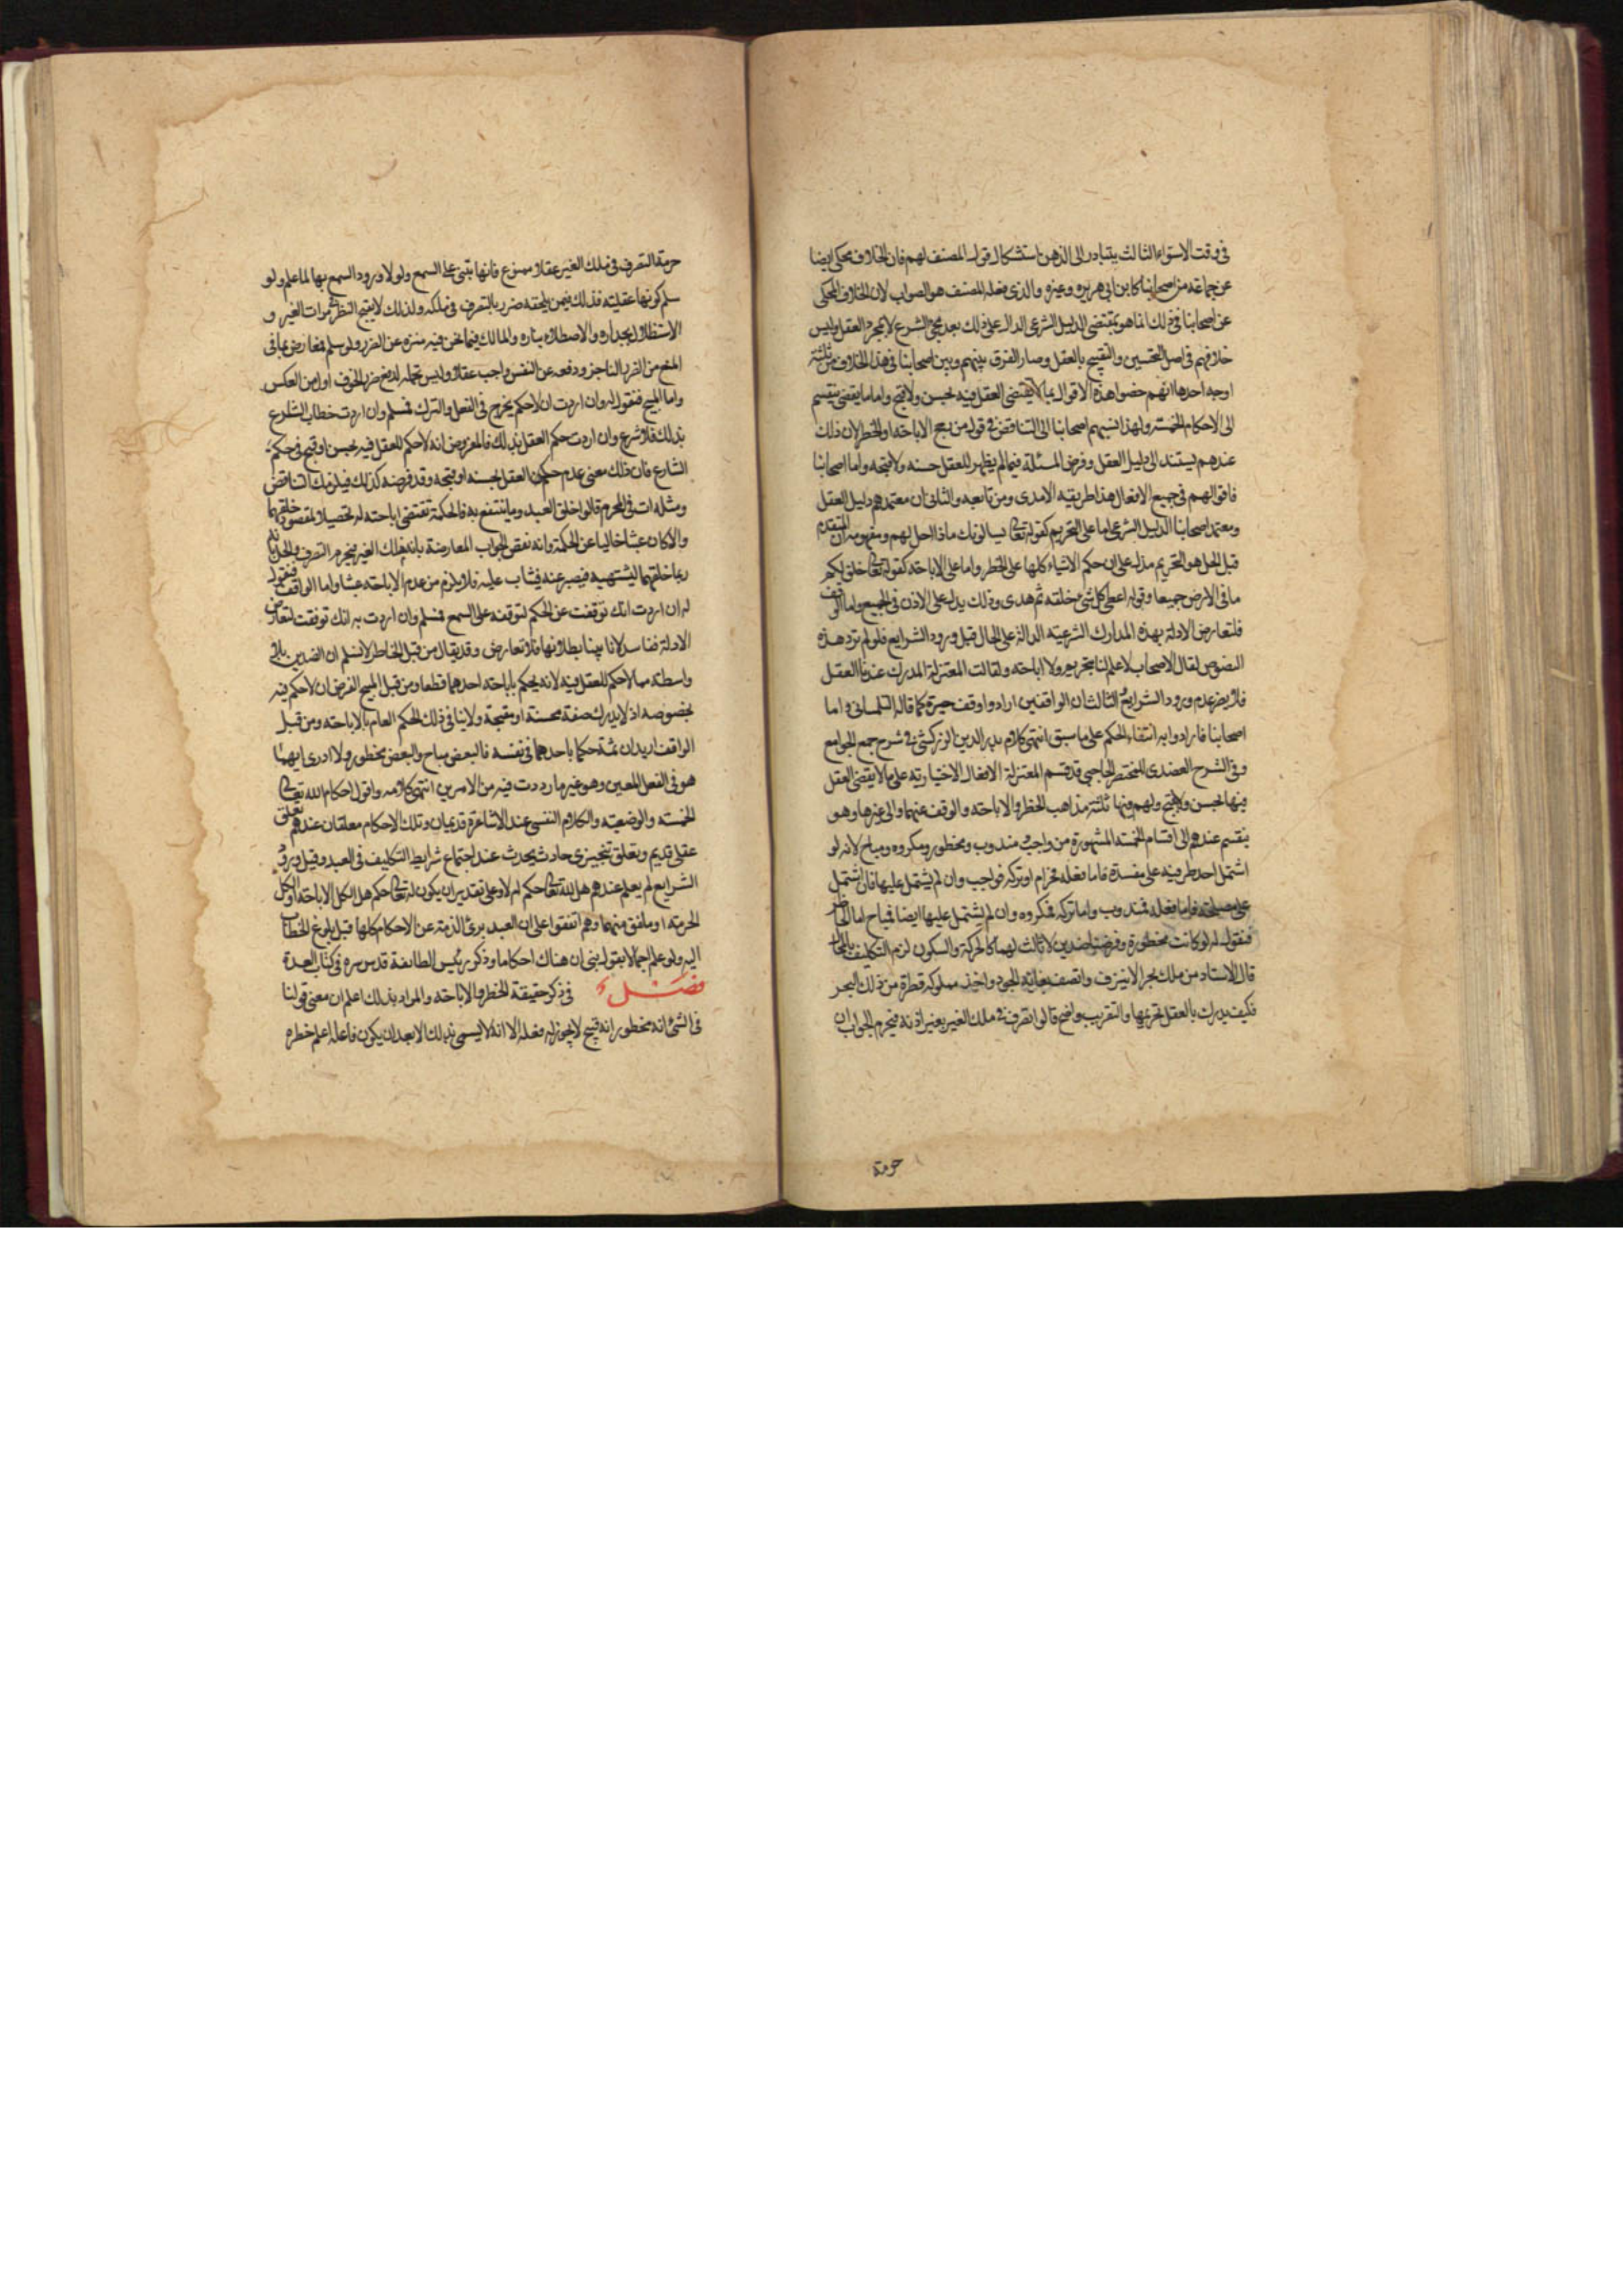 في وقت الاستواء الثالث يتبادر الى الذهن استشكال قول المصنف لهم فان الخلاف محكي ايضا
عن جماعة من اصحابنا كابن ابي هريرة وغيره والذي فعله المصنف هو الصواب لان الخلاف المحكي
عن اصحابنا في ذلك انما هو بمقتضى الدليل الشرعي الدال على ذلك بعد مجئ الشرع لا بمجرد العقل وليس
خلافهم في اصل التحسين والتقبيح بالعقل وصار الفرق بينهم وبين اصحابنا في هذا الخلاف من ثلثة
اوجه احدها انهم خصوا هذه الاقوال بما لا يقتضى العقل فيه بحسن ولا قبح واما ما يقضى ينقسم
الى الاحكام الخمسة ولهذا نسبهم اصحابنا الى التناقض في قول من رجح الاباحة او الحظر لان ذلك
عندهم يستند الى دليل العقل وفرض المسئلة فيما لم يظهر للعقل حسنه ولا قبحه واما اصحابنا
فاقوالهم في جميع الافعال هذا طريقة الامدى ومن تابعه والثاني ان معتمدهم دليل العقل
ومعتمد اصحابنا الدليل الشرعي اما على التحريم كقوله تعالى يسالونك ماذا احل لهم ومفهومه ان المتقدم
قبل الحل هو التحريم فدل على ان حكم الاشياء كلها على الحظر واما على الاباحة كقوله تعالى خلق لكم
ما في الارض جميعا وقوله اعطى كل شئ خلقه ثم هدى وذلك يدل على الاذن في الجميع واما الوقف
فلتعارض الادلة بهذه المدارك الشرعية الدالة على الحال قبل ورود الشرايع فلو لم ترد هذه
النصوص لقال الاصحاب لا علم لنا بتحريم ولا اباحة ولقالت المعتزلة المدرك عندنا العقل
فلا يضر عدم ورود الشرايع الثالث ان الواقفين ارادوا وقف حيرة كما قاله التلمساني واما
اصحابنا فارادوا به انتفاء الحكم على ما سبق انتهى كلام بدر الدين الزركشي في شرح جمع الجوامع
وفي الشرح العضدى للمختصر الحاجبي قد قسم المعتزلة الافعال الاختيارية على ما لا يقضى العقل
فيها بحسن ولا قبح ولهم فيها ثلثة مذاهب الحظر والاباحة والوقف عنهما والى غيرها وهو
ينقسم عندهم الى اقسام الخمسة المشهورة من واجب ومندوب ومحظور ومكروه ومباح لانه لو
اشتمل احد طرفيه على مفسدة فاما فعله فحرام او تركه فواجب وان لم يشتمل عليها فان اشتمل
على مصلحة فاما فعله فمندوب واما تركه فمكروه وان لم يشتمل عليها ايضا فمباح اما الحاظر
فنقول له لو كانت محظورة وفرضنا ضدين لا ثالث لهما كالحركة والسكون لزم التكليف بالمحال
قال الاستاد من ملك بحرا لا ينزف واتصف بغاية الجود واخذ مملوكه قطرة من ذلك البحر
فكيف يدرك بالعقل تحريمها والتقريب واضح قالوا تصرف في ملك الغير بغير اذنه فيحرم الجواب ان
حرمة
حرمة التصرف في ملك الغير عقلا ممنوع فانها تبتنى على السمع ولولا ورود السمع بها لما علم ولو
سلم كونها عقلية فذلك فيمن يلحقه ضرر بالتصرف في ملكه ولذلك لا يقبح النظر مرات الغير و
الاستظلال بجداره والاصطلاء بناره والمالك فيما نحن فيه منزه عن الضرر ولو سلم فمعارض بما في
المنع من الضرر الناجز ودفعه عن النفس واجب عقلا وليس تحمله لدفع ضرر الخوف اولى من العكس
واما المبيح فنقول له وان اردت ان لا حكم بحرج في الفعل والترك فمسلم وان اردت خطاب الشارع
بذلك فلا شرع وان اردت حكم العقل بذلك فالمفروض انه لا حكم للعقل فيه بحسن او قبح في حكم
الشارع فان ذلك معنى عدم حكم العقل بحسنه او قبحه وقد فرضه كذلك فيلزمك التناقض
ومثله ات في المحرم قالوا خلق العبد وما ينتفع به فالحكمة تقتضى اباحته له تحصيلا لمقصود خلقهما
والا كان عبثا خاليا عن الحكمة وانه نقض الجواب المعارضة بانه ملك الغير فيحرم التصرف والحل بانه
ربما خلقهما ليشتهيه فيصبر عنه فيثاب عليه فلا يلزم من عدم الاباحة عبثا واما الواقف فنقول
له ان اردت انك توقفت عن الحكم لتوقفه على السمع فمسلم وان اردت به انك توقفت لتعارض
الادلة ففاسد لانا بينا بطلانها فلا تعارض وقد يقال من قبل الحاظر لا نسلم ان الضدين بلا
واسطة مما لا حكم للعقل فيه لانه يحكم باباحة احدهما قطعا ومن قبل المبيح الفرض ان لا حكم فيه
بخصوصه اذ لا يدرك صفة محسنة او مقبحة ولا ينافي ذلك الحكم العام بالاباحة ومن قبل
الواقف اريد ان ثمة حكما باحدهما في نفسه فالبعض مباح والبعض محظور ولا ادرى ايهما
هو في الفعل المعين وهو غير ما رددت فيه من الامرين انتهى كلامه واقول احكام الله تعالى
الخمسة والوضعية والكلام النفسي عند الاشاعرة قديمان وتلك الاحكام معلقان عندهم تعلق
عقلي قديم وتعلق تنجيزى حادث يحدث عند اجتماع شرايط التكليف في العبد وقبل ورود
الشرايع لم يعلم عندهم هل لله تعالى حكم ام لا وعلى تقدير ان يكون له تعالى حكم هل الكل الاباحة او الكل
الحرمة او ملفق منهما وهم اتفقوا على ان العبد برئ الذمة عن الاحكام كلها قبل بلوغ الخطاب
اليه ولو علم اجمالا بقول نبي ان هناك احكاما وذكر رئيس الطائفة قدس سره في كتاب العدة
فصل في ذكر حقيقة الحظر والاباحة والمراد بذلك اعلم ان معنى قولنا
في الشئ انه محظور انه قبيح لا يجوز له فعله الا انه لا يسمى بذلك الا بعد ان يكون فاعله اعلم حظره